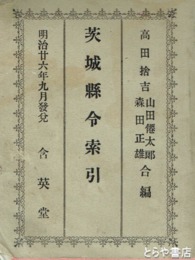 高田捨吉
山田僊太郎
森田正雄
合編
茨城縣令索引
明治廿六年九月發兌
含英堂
とらや書店